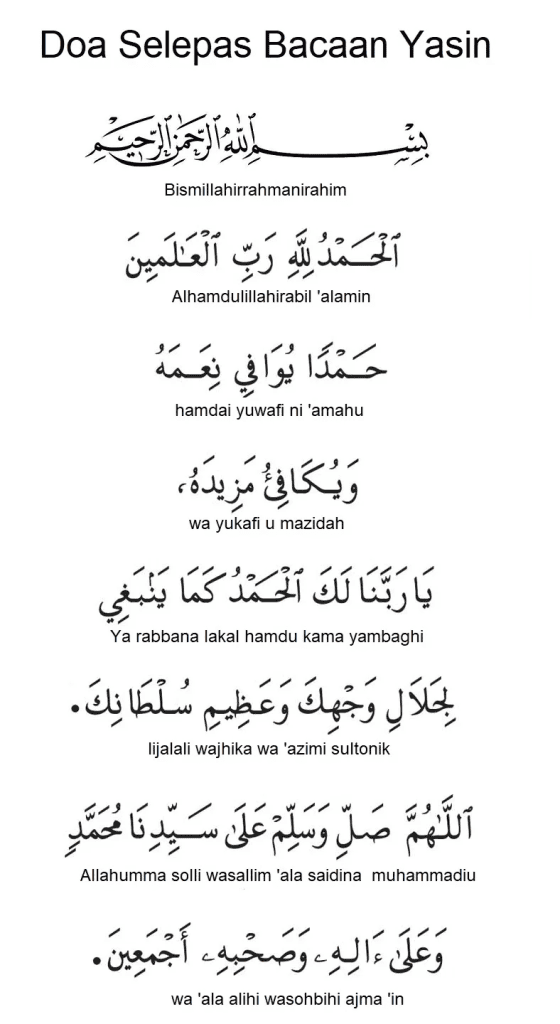 Doa Selepas Bacaan Yasin
بِسْمِ ٱللَّهِ ٱلرَّحْمَٰنِ ٱلرَّحِيمِ
Bismillahirrahmanirahim
ٱلْحَمْدُ لِلَّهِ رَبِّ ٱلْعَـٰلَمِينَ
Alhamdulillahirabil 'alamin
حَمْدًا يُوَافِي نِعَمَهُ
hamdai yuwafi ni 'amahu
وَيُكَافِئُ مَزِيدَهُ،
wa yukafi u mazidah
يَا رَبَّنَا لَكَ ٱلْحَمْدُ كَمَا يَنْبَغِي
Ya rabbana lakal hamdu kama yambaghi
لِجَلَالِ وَجْهِكَ وَعَظِيمِ سُلْطَانِكَ.
lijalali wajhika wa 'azimi sultonik
ٱللَّهُمَّ صَلِّ وَسَلِّمْ عَلَىٰ سَيِّدِنَا مُحَمَّدٍ
Allahumma solli wasallim 'ala saidina muhammadiu
وَعَلَىٰ ءَالِهِۦ وَصَحْبِهِۦ أَجْمَعِينَ.
wa 'ala alihi wasohbihi ajma 'in